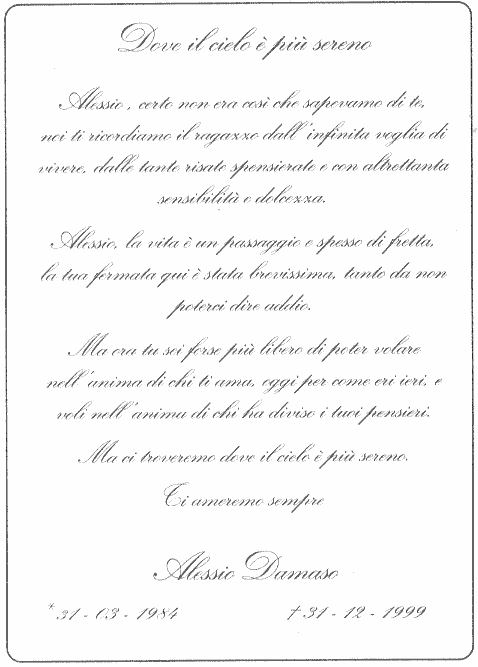 Dove il cielo è più sereno
Alessio, certo non era così che sapevamo di te,
noi ti ricordiamo il ragazzo dall'infinita voglia di
vivere, dalle tante risate spensierate e con altrettanta
sensibilità e dolcezza.
Alessio, la vita è un passaggio e spesso di fretta,
la tua fermata qui è stata brevissima, tanto da non
poterci dire addio.
Ma ora tu sei forse più libero di poter volare
nell'anima di chi ti ama, oggi per come eri ieri, e
voli nell'anima di chi ha diviso i tuoi pensieri.
Ma ci troveremo dove il cielo è più sereno.
Ti ameremo sempre
Alessio Damaso
* 31 - 03 - 1984 † 31 - 12 - 1999